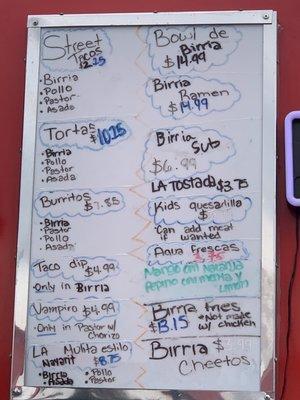 Street
Tacos
$2.25
• Birria
• Pollo
• Pastor
• Asada
Tortas $10.25
• Birria
• Pollo
• Pastor
• Asada
Burritos $7.85
• Birria
• Pastor
• Pollo
• Asada
Taco dip $4.99
Only in Birria
Vampiro $4.99
• Only in Pastor w/
Chorizo
LA Mulita estilo
Nararit $8.75
• Birria • Pollo
• Asada • Pastor
Bowl de
Birria
$14.99
Birria
Ramen
$14.99
Birria
Sub
$6.99
LA TOSTADA $3.75
Kids quesadilla
$
Can add meat
if wanted
Agua frescas
Mango con Naranja
Pepino con menta y
Limon
Birria fries
$13.15 • Not made
w/ chicken
Birria $
Cheetos